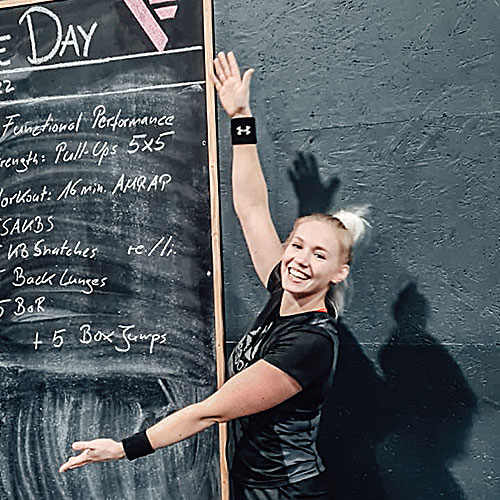 E DAY
22
Functional Performance
rength: Pull-Ups 5x5
orkout: 16 min. AMRAP
SAKBS
KB Snatches re./li.
Back Lunges
5 BoR
+ 5 Box Jumps